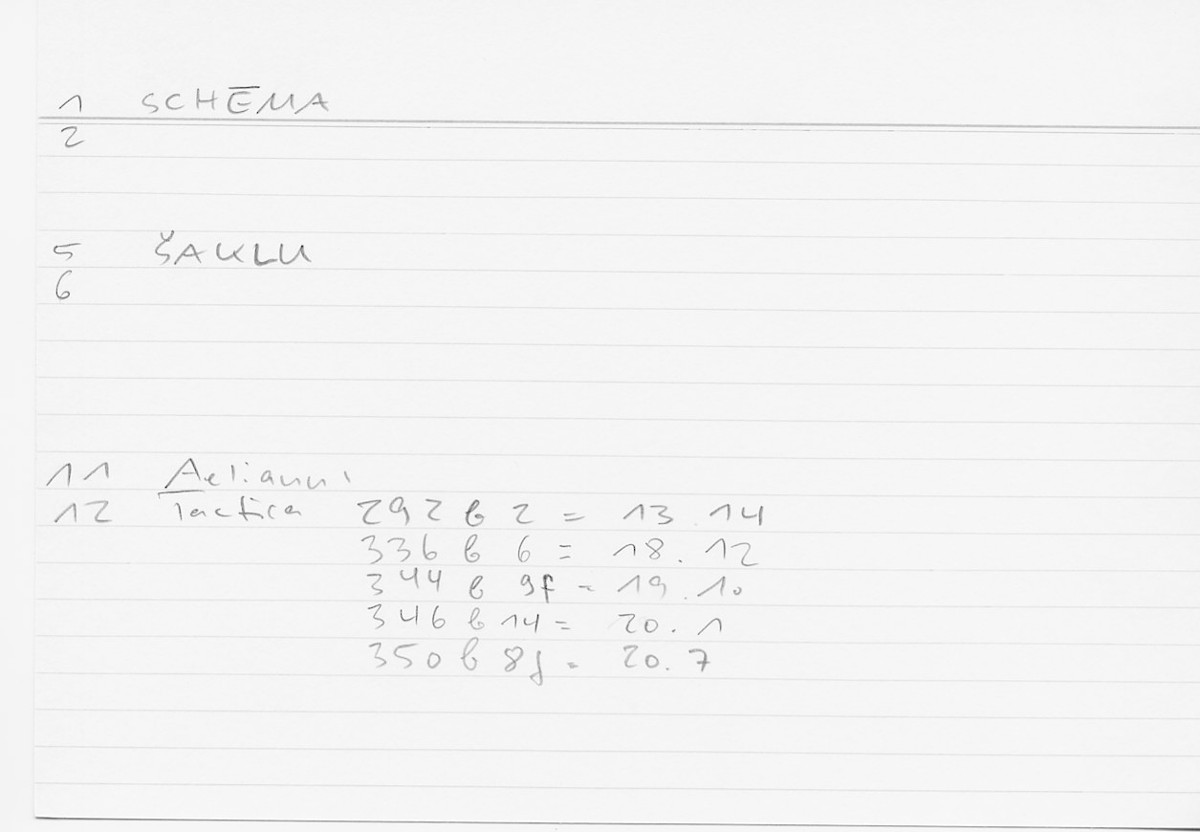 1 SCHĒMA
2
5 ŠAKLU
6
11 Aeliani
12 Tactica 292 b 2 = 13.14
336 b 6 = 18.12
344 b 9f = 19.10
346 b 14 = 20.1
350 b 8f = 20.7